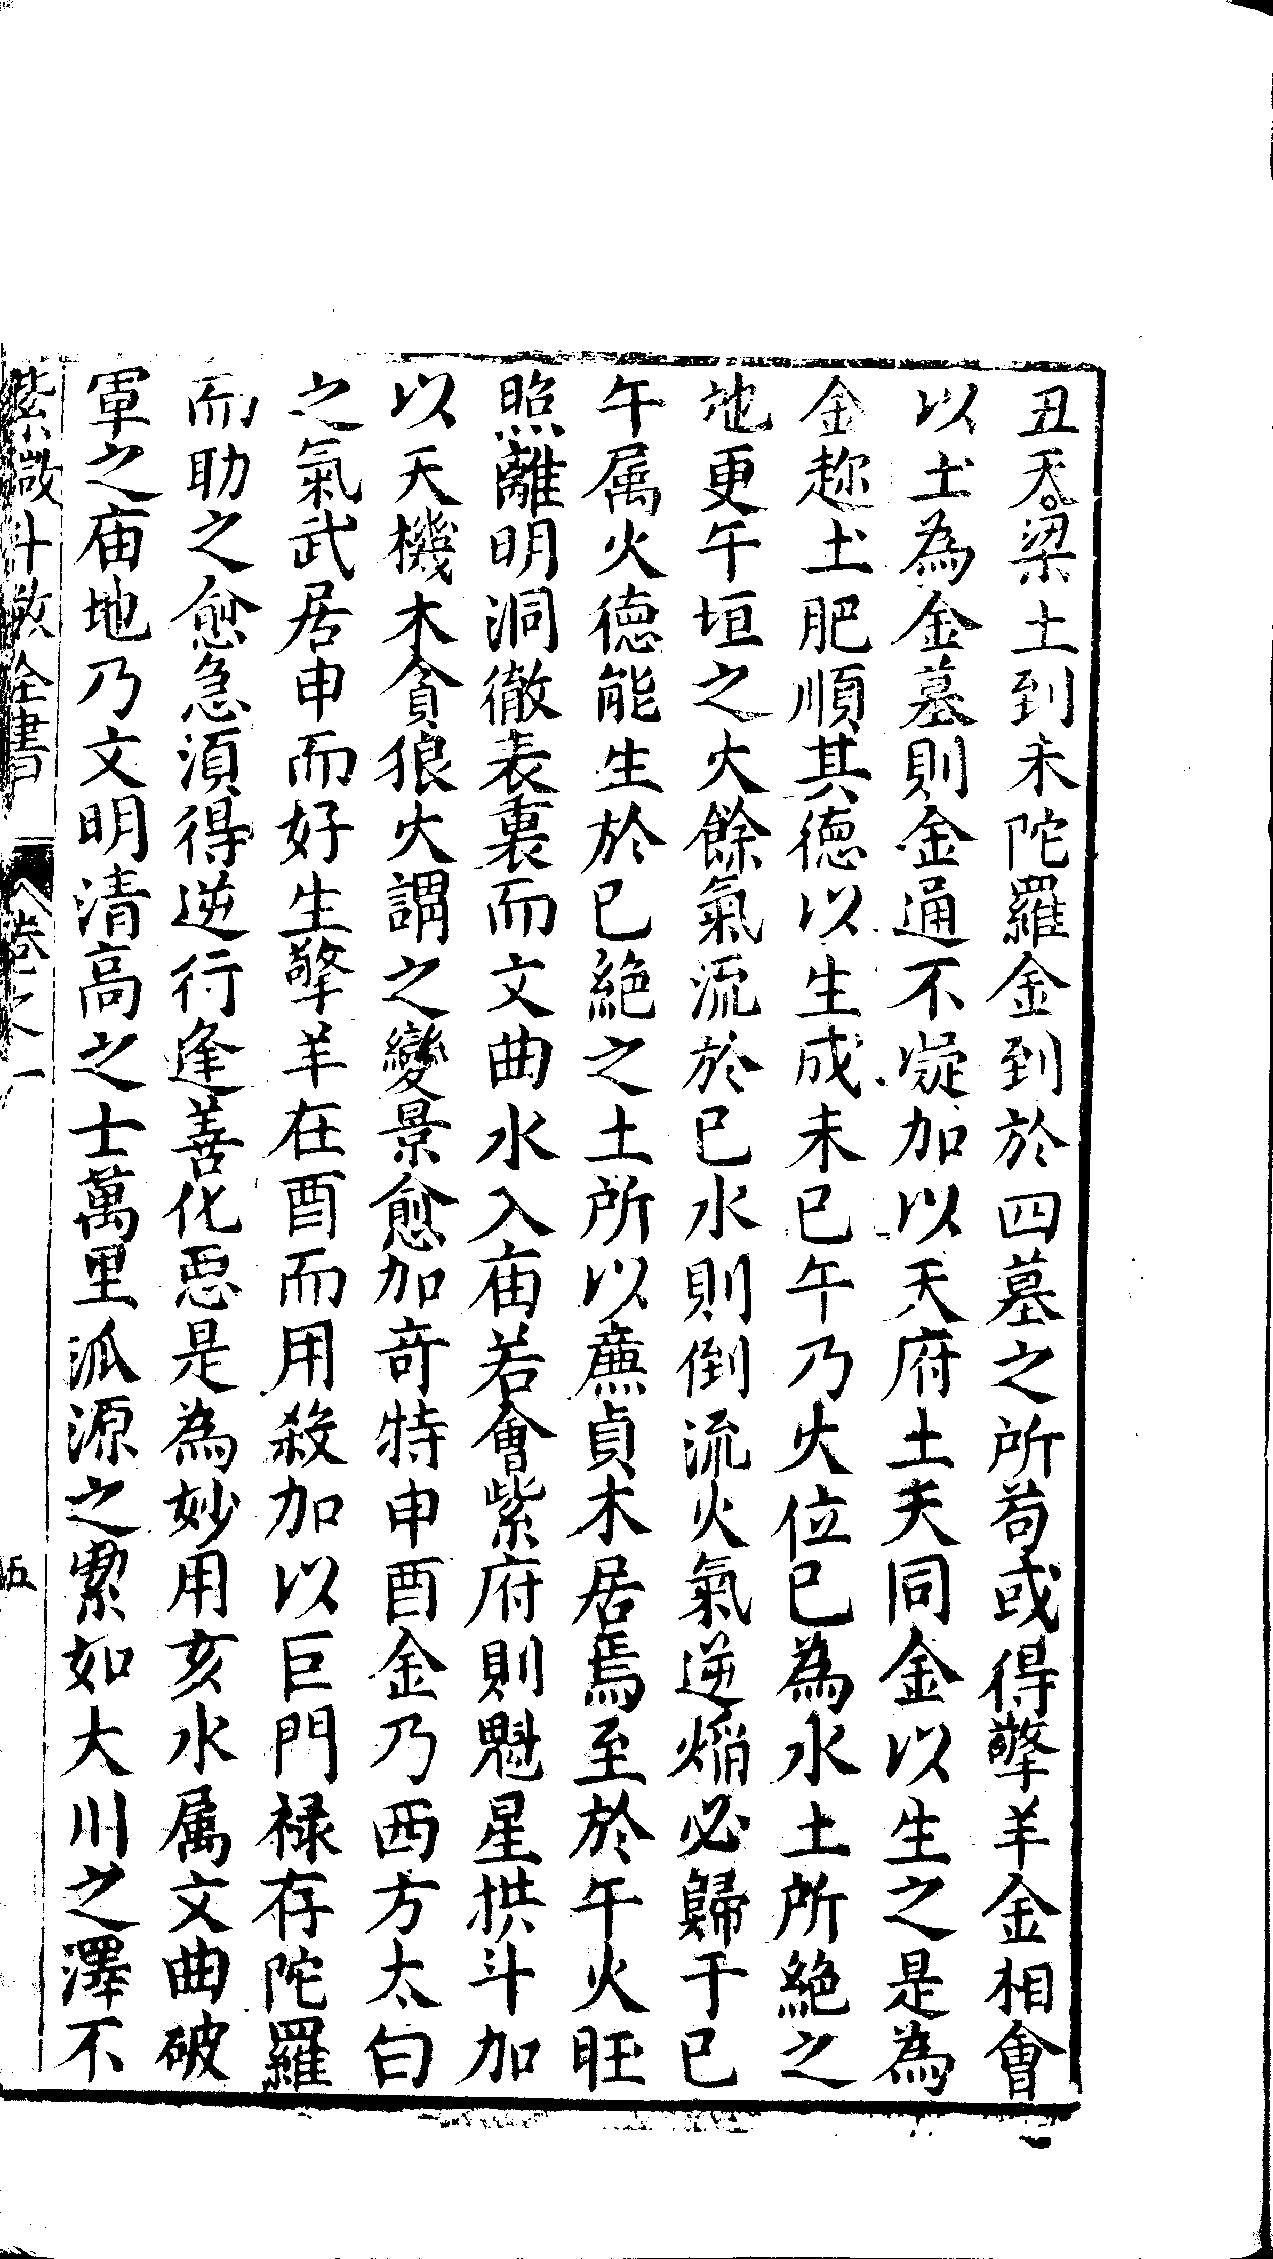 丑天梁土到未陀羅金到於四墓之所苟或得擎羊金相會
以土為金墓則金通不凝加以天府土天同金以生之是為
金趂土肥順其德以生成未巳午乃火位巳為水土所絕之
地更午垣之火餘氣流於巳水則倒流火氣逆焰必歸于巳
午属火德能生於巳絕之土所以廉貞木居焉至於午火旺
照離明洞徹表裏而文曲水入庙若會紫府則魁星拱斗加
以天機木貪狼火謂之變景愈加奇特申酉金乃西方太白
之氣武居申而好生擎羊在酉而用殺加以巨門禄存陀羅
而助之愈急須得逆行逢善化惡是為妙用亥水属文曲破
軍之庙地乃文明清高之士萬里派源之潔如大川之澤不
紫微斗數全書 卷之一 五